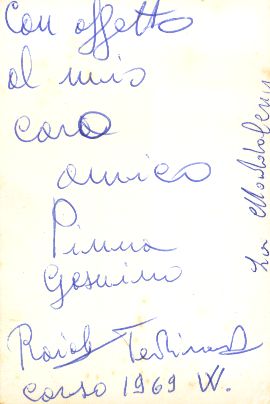 Con affetto
al mio
caro
amico
Pinna
Gesuino
corso 1969 W.
La Maddalena